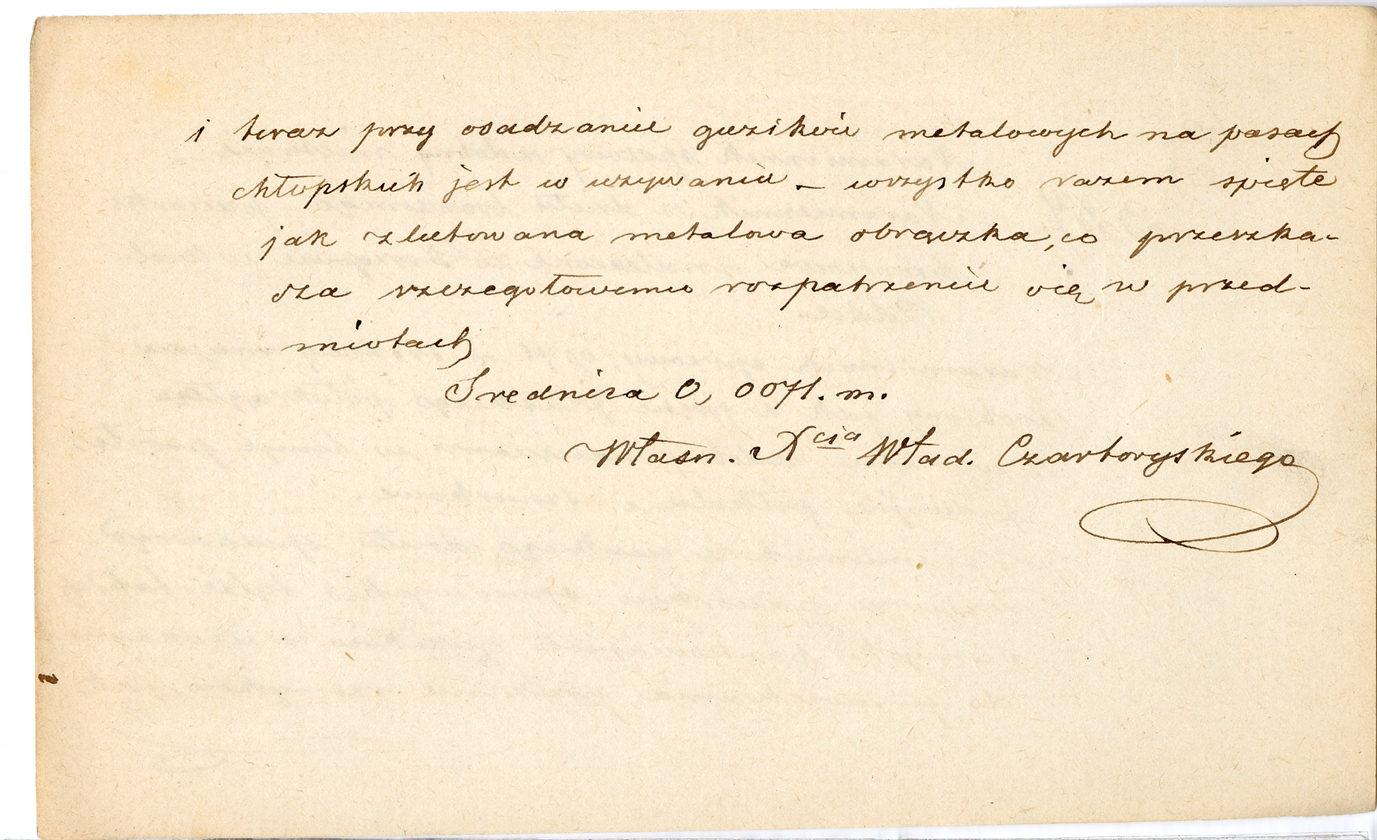 i teraz przy osadzaniu guzików metalowych na pasach
chłopskich jest w używaniu – wszystko razem spięte
jak zlutowana metalowa obrączka, co przeszka-
dza szczegółowemu rozpatrzeniu się w przed-
miotach
Srednica 0,0071. m.
Własn. Xcia Wład. Czartoryskiego